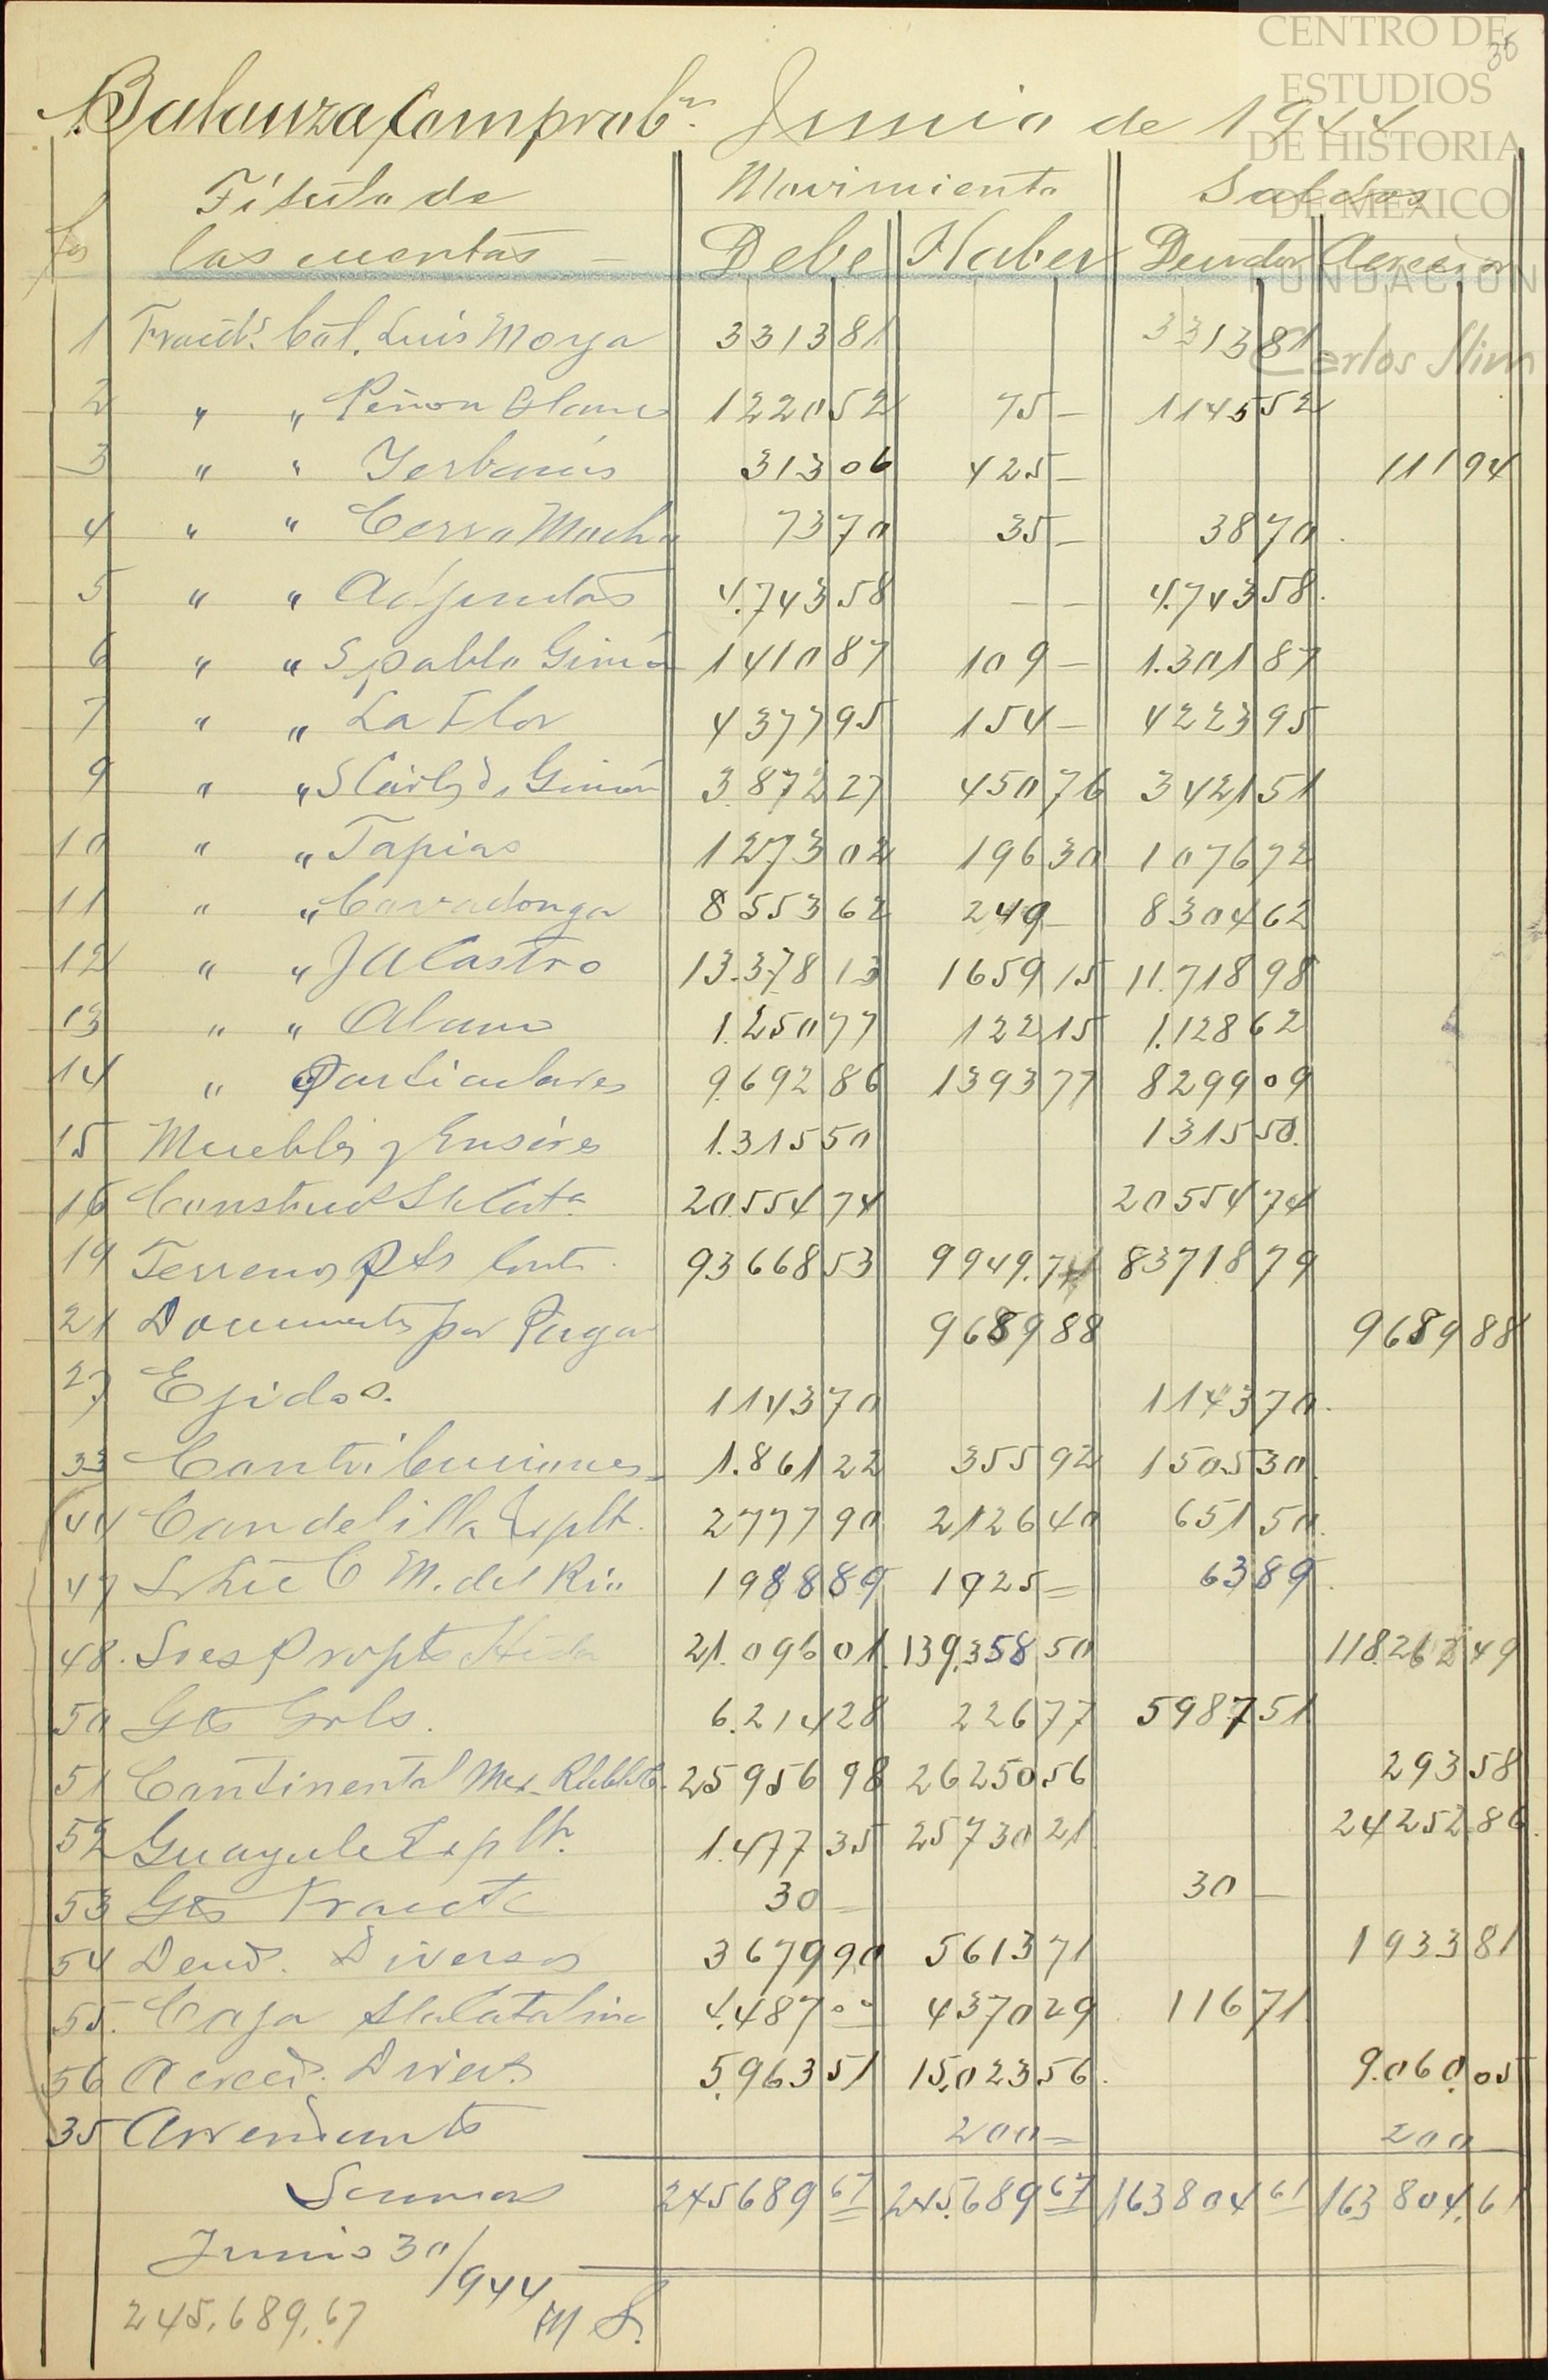 CENTRO DE
ESTUDIOS
DE HISTORIA
DE MEXICO
FUNDACION
Carlos Slim
36
Balanza Comprobn. Junio de 1944
Fos Título de Movimiento Saldos
las cuentas — Debe Haber Deudor Acreedor
1 Fracds. Col. Luis Moya 3313 81 3313 81
2 " " Peñon Blanco 1220 52 75 — 1145 52
3 " " Yerbanis 313 06 425 — 111 94
4 " " Cerro Mocho 73 70 35 — 38 70
5 " " Adjuntas 4.743 58 — — 4.743 58
6 " " S pablo Gimé 1410 87 109 — 1.301 87
7 " " La Flor 4377 95 154 — 4223 95
9 " " S Carlos de Gimén 3.872 27 450 76 3421 51
10 " " Tapias 1273 02 196 30 1076 72
11 " " Covadonga 8553 62 249 — 8304 62
12 " " J A Castro 13.378 13 1659 15 11.718 98
13 " " Alamo 1.250 77 122 15 1.128 62
14 " Particulares 9.692 86 1393 77 8299 09
15 Muebles y Enseres 1.315 50 1315 50
16 Construc Sta Cata 20.554 74 20554 74
19 Terrenos Pts Cont. 93668 53 9949.74 83718 79
21 Documents por Pagar 9689 88 9689 88
27 Ejidos. 1143 70 1143 70
33 Contribuciones 1.861 22 355 92 1505 30
44 Candelilla Explt. 2777 90 2126 40 651 50
47 C M. del Rio 1988 89 1925 — 63 89
48. Sres Propts Hcda 21.096 01 139.358 50 118.262 49
50 Gts Grls. 6.214 28 226 77 5987 51
51 Continental Mex. 25956 98 26250 56 293 58
52 Guayule Explt. 1.477 35 25730 21 24252.86
53 Gts Fracts 30 — 30 —
54 Deud. Diversos 3679 90 5613 71 1933 81
55. Caja Sta Catalina 4.487 00 4370 29 116 71
56 Acreed. Divers. 5.963 51 15.023 56 9.060.05
35 Arrendamnts 200 — 200 —
Sumas 245689 67 245.689 67 163804 61 163 804.61
Junio 30/944
245.689.67 M S.